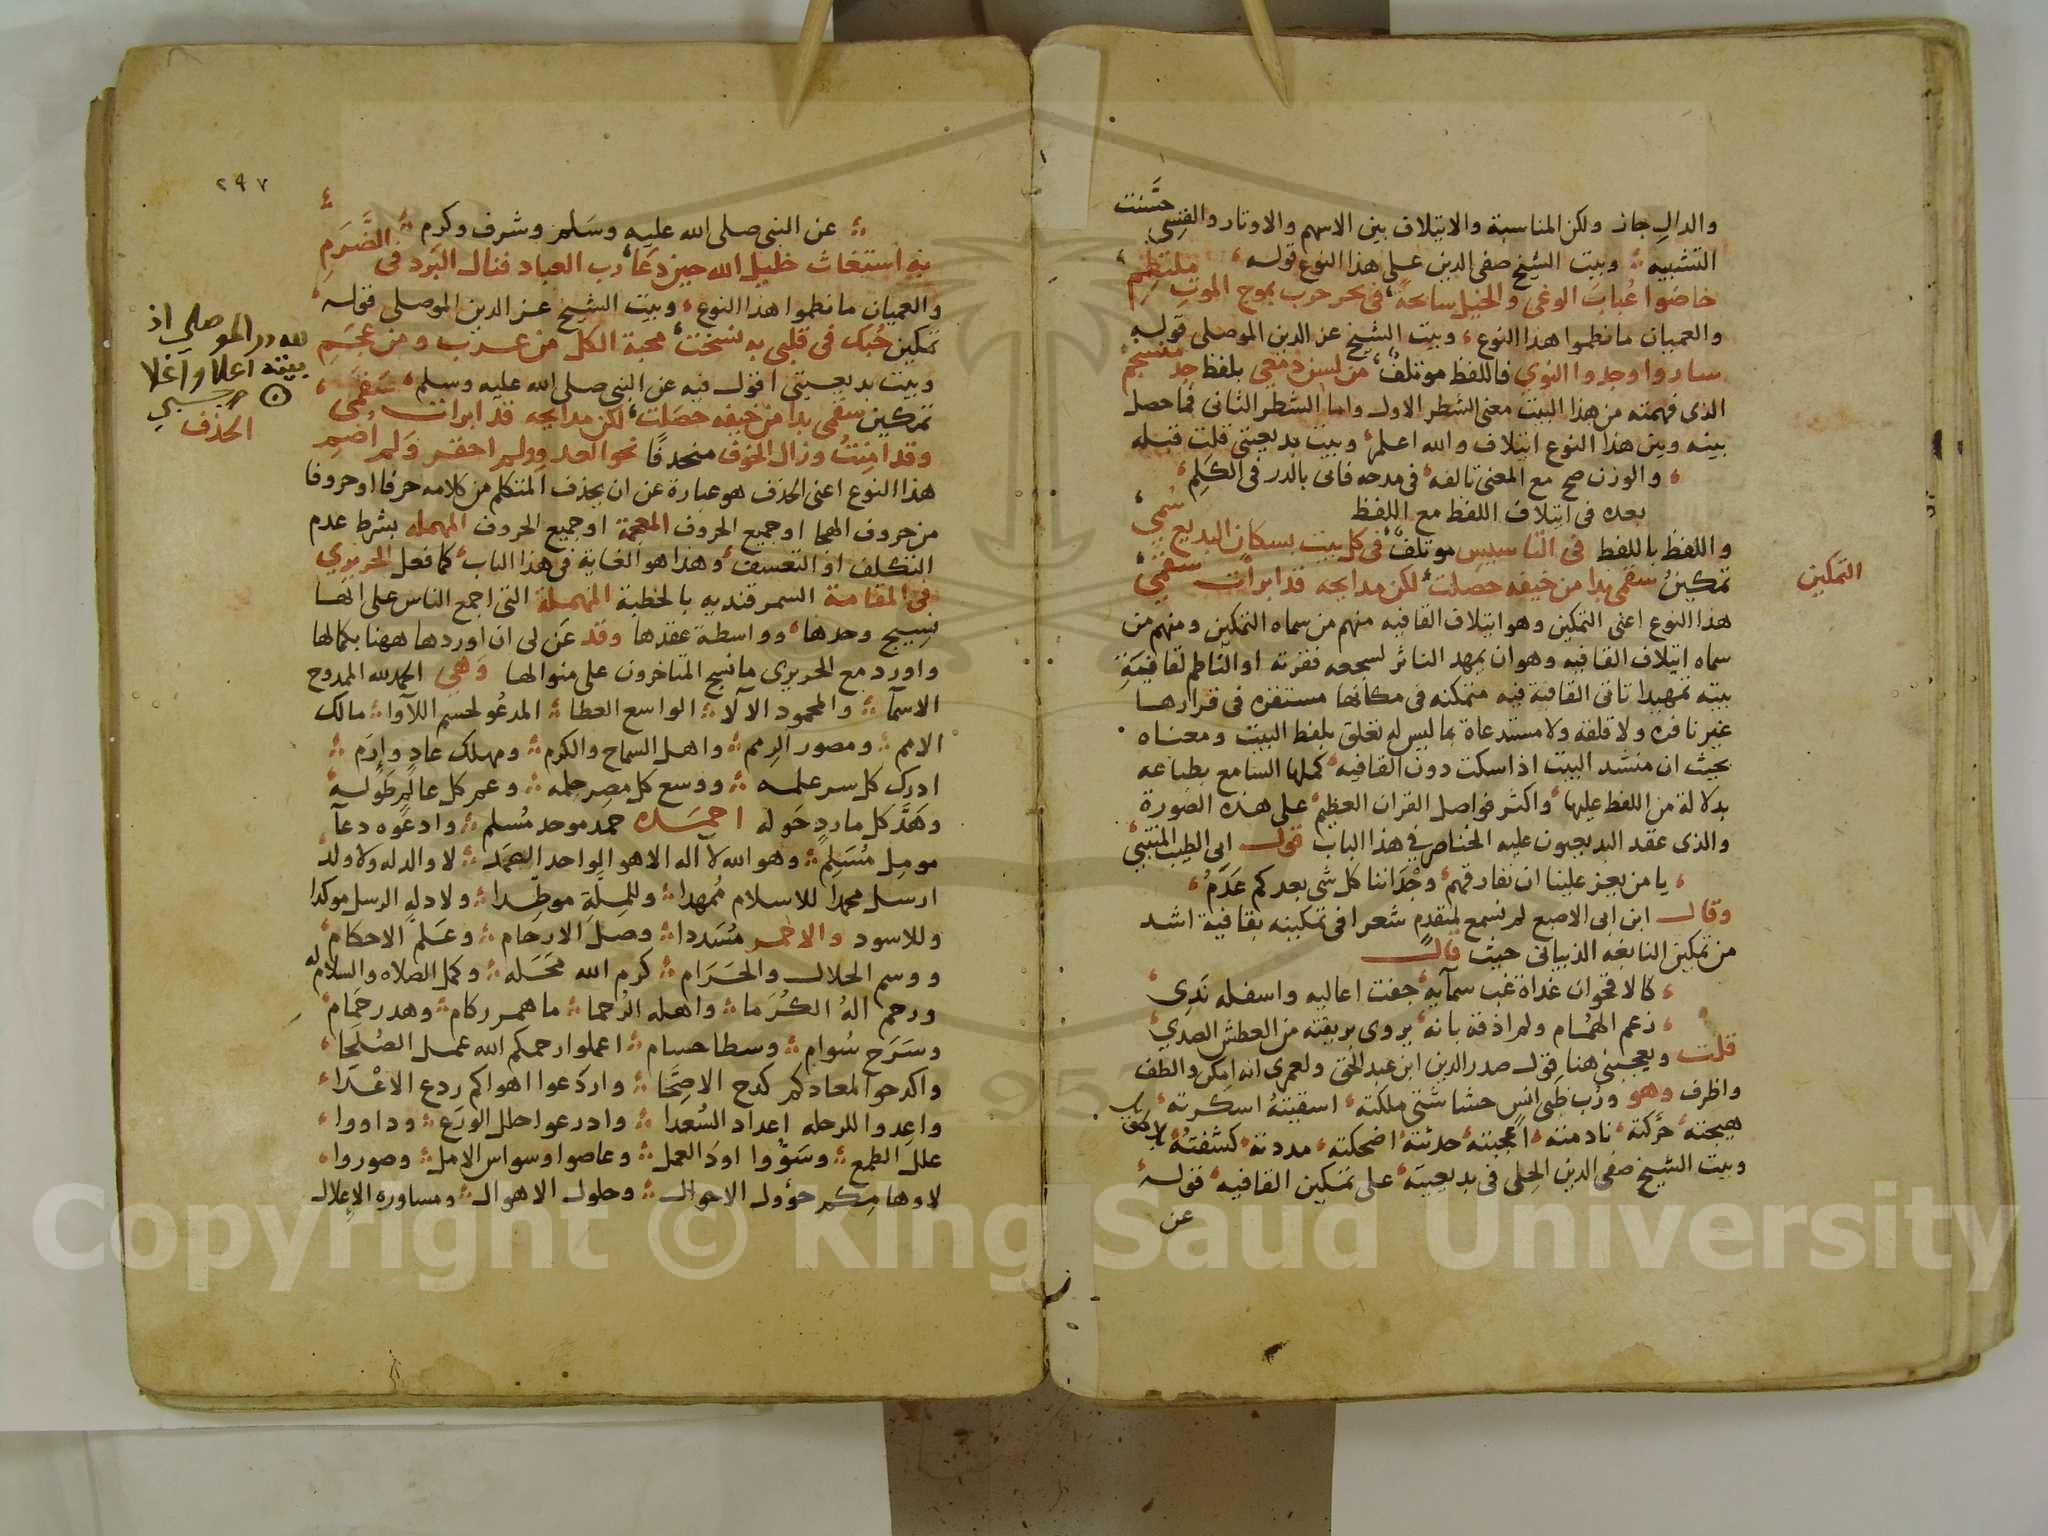 والدال جاز ولكن المناسبة والايتلاف بين الاسهم والاوتار والقسي حسنت
التشبيه وبيت الشيخ صفي الدين على هذا النوع قوله
خاضوا عباب الوغى والخيل سابحة في بحر حرب بموج الموت ملتطم
والعميان ما نظموا هذا النوع وبيت الشيخ عز الدين الموصلي قوله
ساروا وجدوا النوى فاللفظ موتلف من لسن دمعي بلفظ جد منسجم
الذي فهمته من هذا البيت معنى الشطر الاول واما الشطر الثاني فما حصل
بينه وبين هذا النوع ايتلاف والله اعلم وبيت بديعيتي قلت قبله
والوزن صح مع المعنى تالفه في مدحه فاتى بالدر في الكلم
بعده في ايتلاف اللفظ مع اللفظ
واللفظ باللفظ في التاسيس موتلف في كل بيت بسكان البديع سمي
التمكين
تمكين سقمي بدا من خيفه حصلت لكن مدايحه قد ابرات سقمي
هذا النوع اعني التمكين وهو ايتلاف القافيه منهم من سماه التمكين ومنهم من
سماه ايتلاف القافيه وهو ان يمهد الناثر لسجعه فقرته او الناظم لقافية
بيته تمهيدا تاتي القافية فيه متمكنه في مكانها مستقره في قرارها
غير نافره ولا قلقه ولا مستدعاة بما ليس له تعلق بلفظ البيت ومعناه
بحيث ان منشد البيت اذا سكت دون القافيه كملها السامع بطباعه
بدلالة من اللفظ عليها واكثر فواصل القران العظيم على هذه الصورة
والذي عقد البديعيون عليه الخناصر في هذا الباب قول ابي الطيب المتنبي
يا من يعز علينا ان نفارقهم وجداننا كل شي بعدكم عدم
وقال ابن ابي الاصبع لم نسمع لمتقدم شعرا في تمكينه بقافية اشد
من تمكين النابغه الذبياني حيث قال
كالاقحوان غداة غب سمآيه جفت اعاليه واسفله ندي
زعم الهمام ولم اذقه بانه يروى بريقته من العطش الصدي
قلت ويعجبني هنا قول صدر الدين ابن عبد الحق ولعمري انه امكن والطف
واظرف وهو ورب ظبي انس حشاشتي ملكته اسقيته اسكرته
هيجته حركته نادمته اعجبته حدثته اضحكته مددته كشفته
وبيت الشيخ صفي الدين الحلي في بديعيته على تمكين القافيه قوله
عن
٢٩٧
عن النبي صلى الله عليه وسلم وشرف وكرم
به استغاث خليل الله حين دعا رب العباد فنال البرد في الضرم
والعميان ما نظموا هذا النوع وبيت الشيخ عز الدين الموصلي قوله
تمكين حبك في قلبي به نسخت محبة الكل من عرب ومن عجم
وبيت بديعيتي اقول فيه عن النبي صلى الله عليه وسلم
تمكين سقمي بدا من خيفه حصلت لكن مدايحه قد ابرات سقمي
لله در الموصلي اذ
بيته اعلا واغلا
الحذف
وقد امنت وزال الخوف منحذفا نحو العدو ولم احقر ولم اضم
هذا النوع اعني الحذف هو عبارة عن ان يحذف المتكلم من كلامه حرفا او حروفا
من حروف الهجا او جميع الحروف المعجمة او جميع الحروف المهمله بشرط عدم
التكلف او التعسف وهذا هو الغاية في هذا الباب كما فعل الحريري
في المقامة السمرقنديه بالخطبة المهملة التي اجمع الناس على انها
نسيج وحدها وواسطة عقدها وقد عن لي ان اوردها ههنا بكمالها
واورد مع الحريري ما نسج المتاخرون على منوالها وهي الحمد لله الممدوح
الاسمآ والمحمود الآلا الواسع العطا المدعو لحسم اللآوا مالك
الامم ومصور الرمم واهل السماح والكرم ومهلك عاد وارم
ادرك كل سر علمه ووسع كل مصر حلمه وعم كل عالم طوله
وهد كل مارد حوله احمده حمد موحد مسلم وادعوه دعآ
مومل مسلم وهو الله لا اله الا هو الواحد الصمد لا والد له ولا ولد
ارسل محمدا للاسلام ممهدا وللملة موطدا ولادلة الرسل موكدا
وللاسود والاحمر مسددا وصل الارحام وعلم الاحكام
ووسم الحلال والحرام كرم الله محله وكمل الصلاه والسلام له
ورحم اله الكرما واهله الرحما ما همر ركام وهدر حمام
وسرح سوام وسطا حسام اعملوا رحمكم الله عمل الصلحا
واكدحوا لمعادكم كدح الاصحا واردعوا اهواكم ردع الاعدا
واعدوا للرحله اعداد السعدا وادرعوا حلل الورع وداووا
علل الطمع وسووا اود العمل وعاصوا وسواس الامل وصوروا
لاوهامكم حؤول الاحوال وحلول الاهوال ومساورة الاعلال